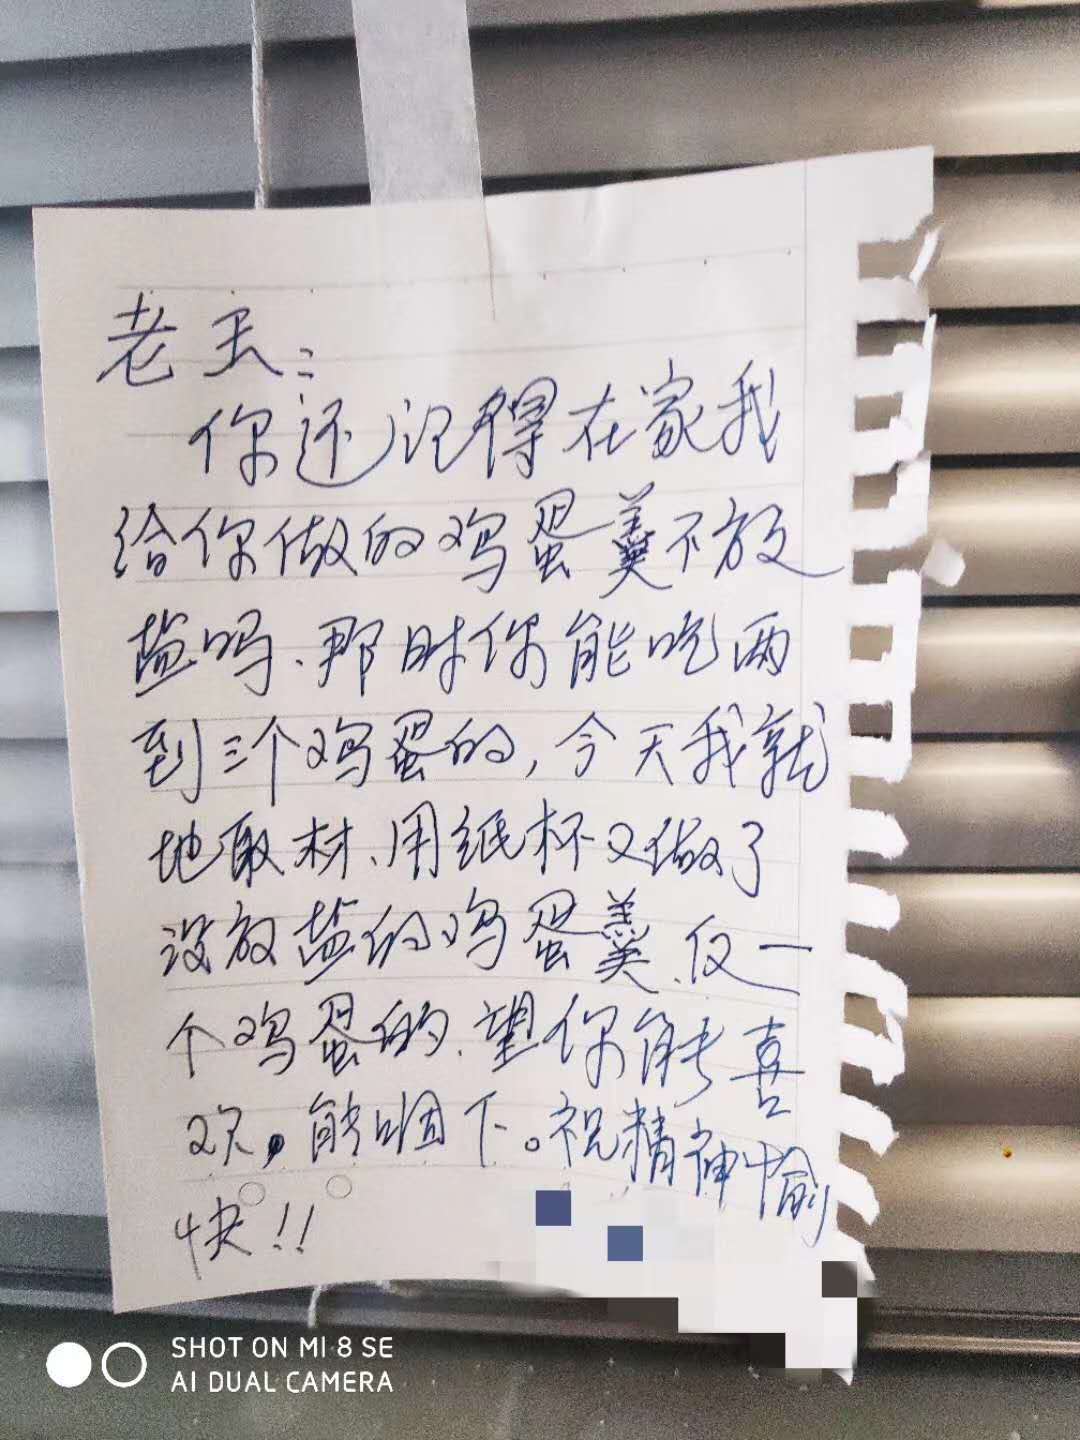 老王：
你还记得在家我
给你做的鸡蛋羹不放
盐吗、那时你能吃两
到三个鸡蛋的，今天我就
地取材、用纸杯又做了
没放盐的鸡蛋羹、仅一
个鸡蛋的、望你能喜
欢，能咽下。祝精神愉
快！！
SHOT ON MI 8 SE
AI DUAL CAMERA